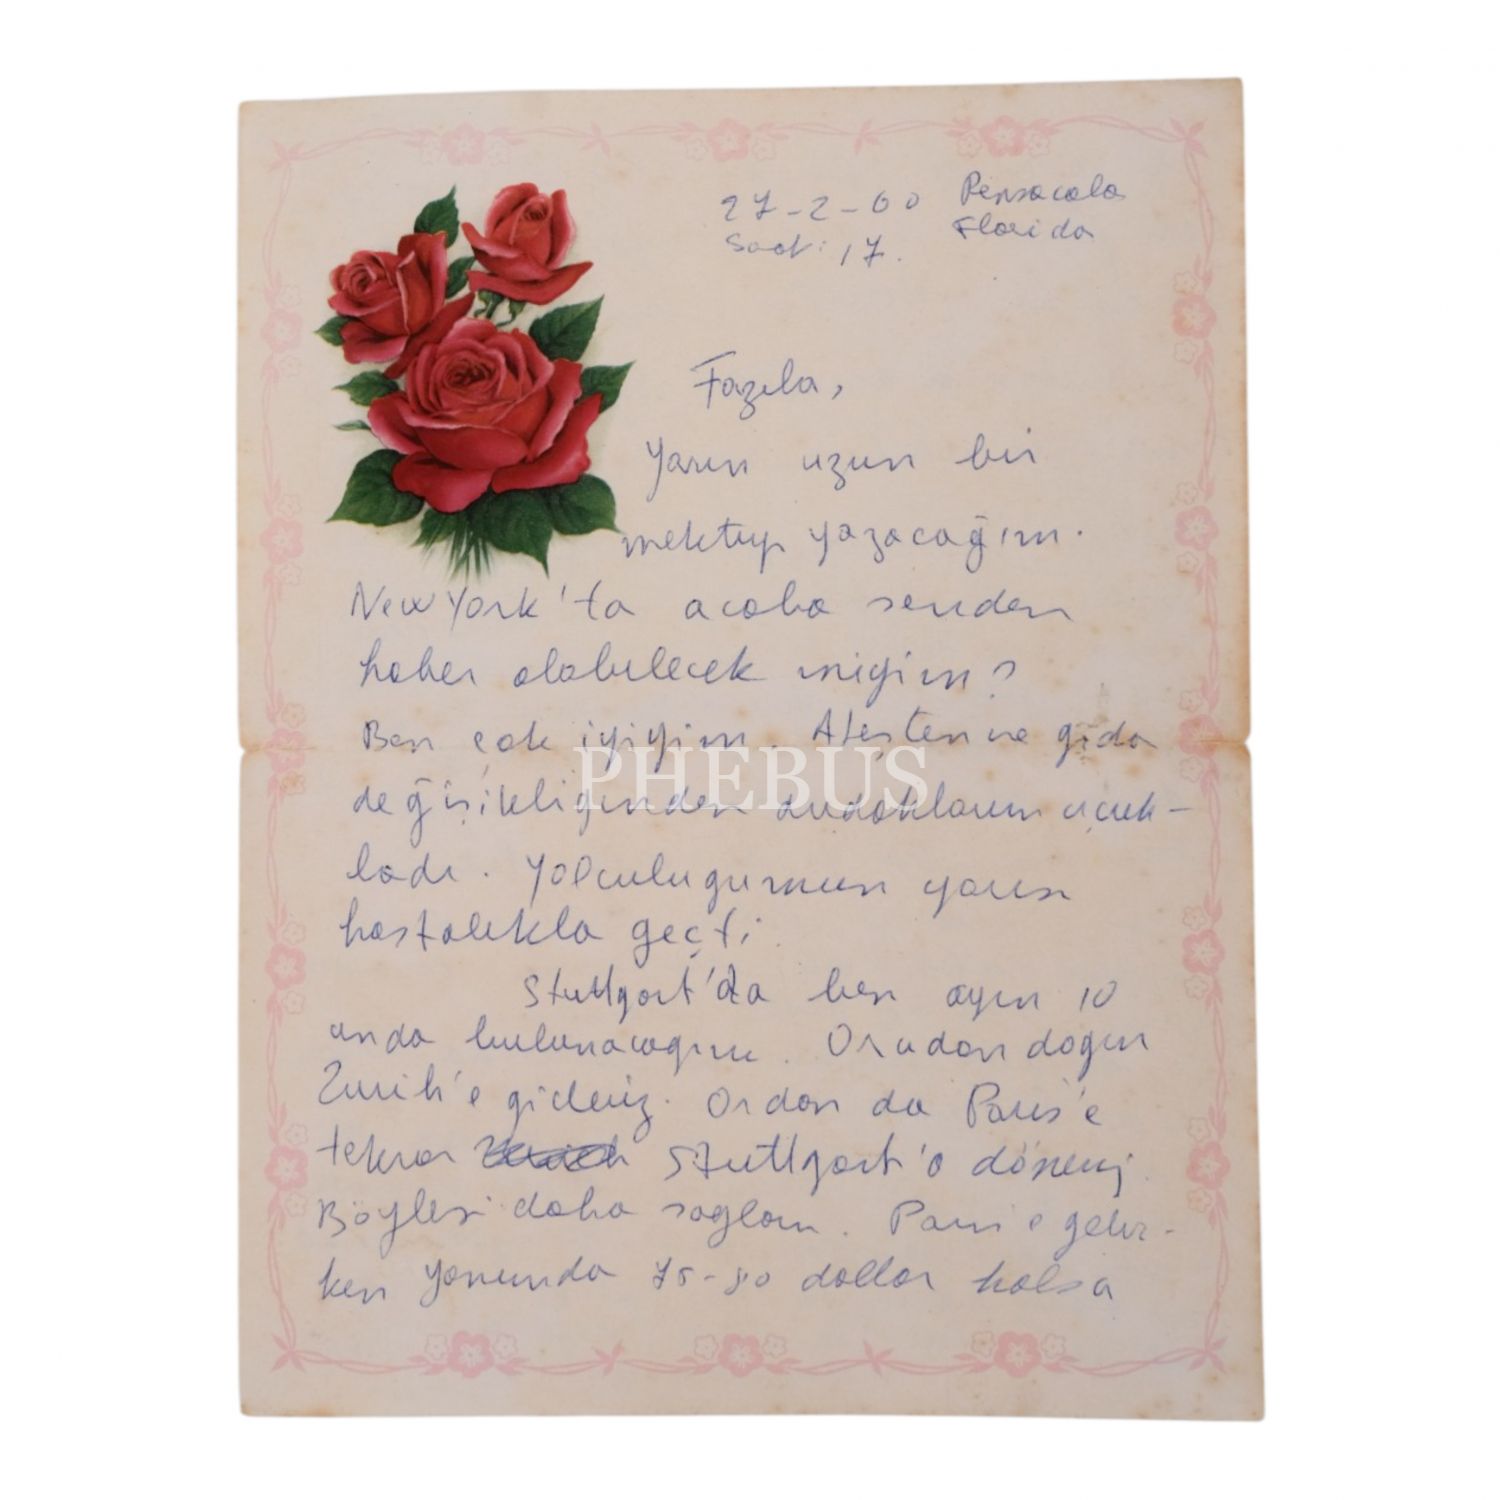 27-2-60 Pensacola
Saat: 17. Florida
Fazıla,
Yarın uzun bir
mektup yazacağım.
New York'ta acaba senden
haber alabilecek miyim?
Ben çok iyiyim. Ateşten ve gıda
değişikliğinden dudaklarım uçuk-
ladı. Yolculuğumun yarısı
hastalıkla geçti.
Stuttgart'da ben ayın 10
unda bulunacağım. Oradan doğru
Zurih'e gideriz. Ordan da Paris'e
tekrar Stuttgart'a döneriz.
Böylesi daha sağlam. Paris'e gelir-
ken yanımda 75-80 dollar kalsa
PHEBUS